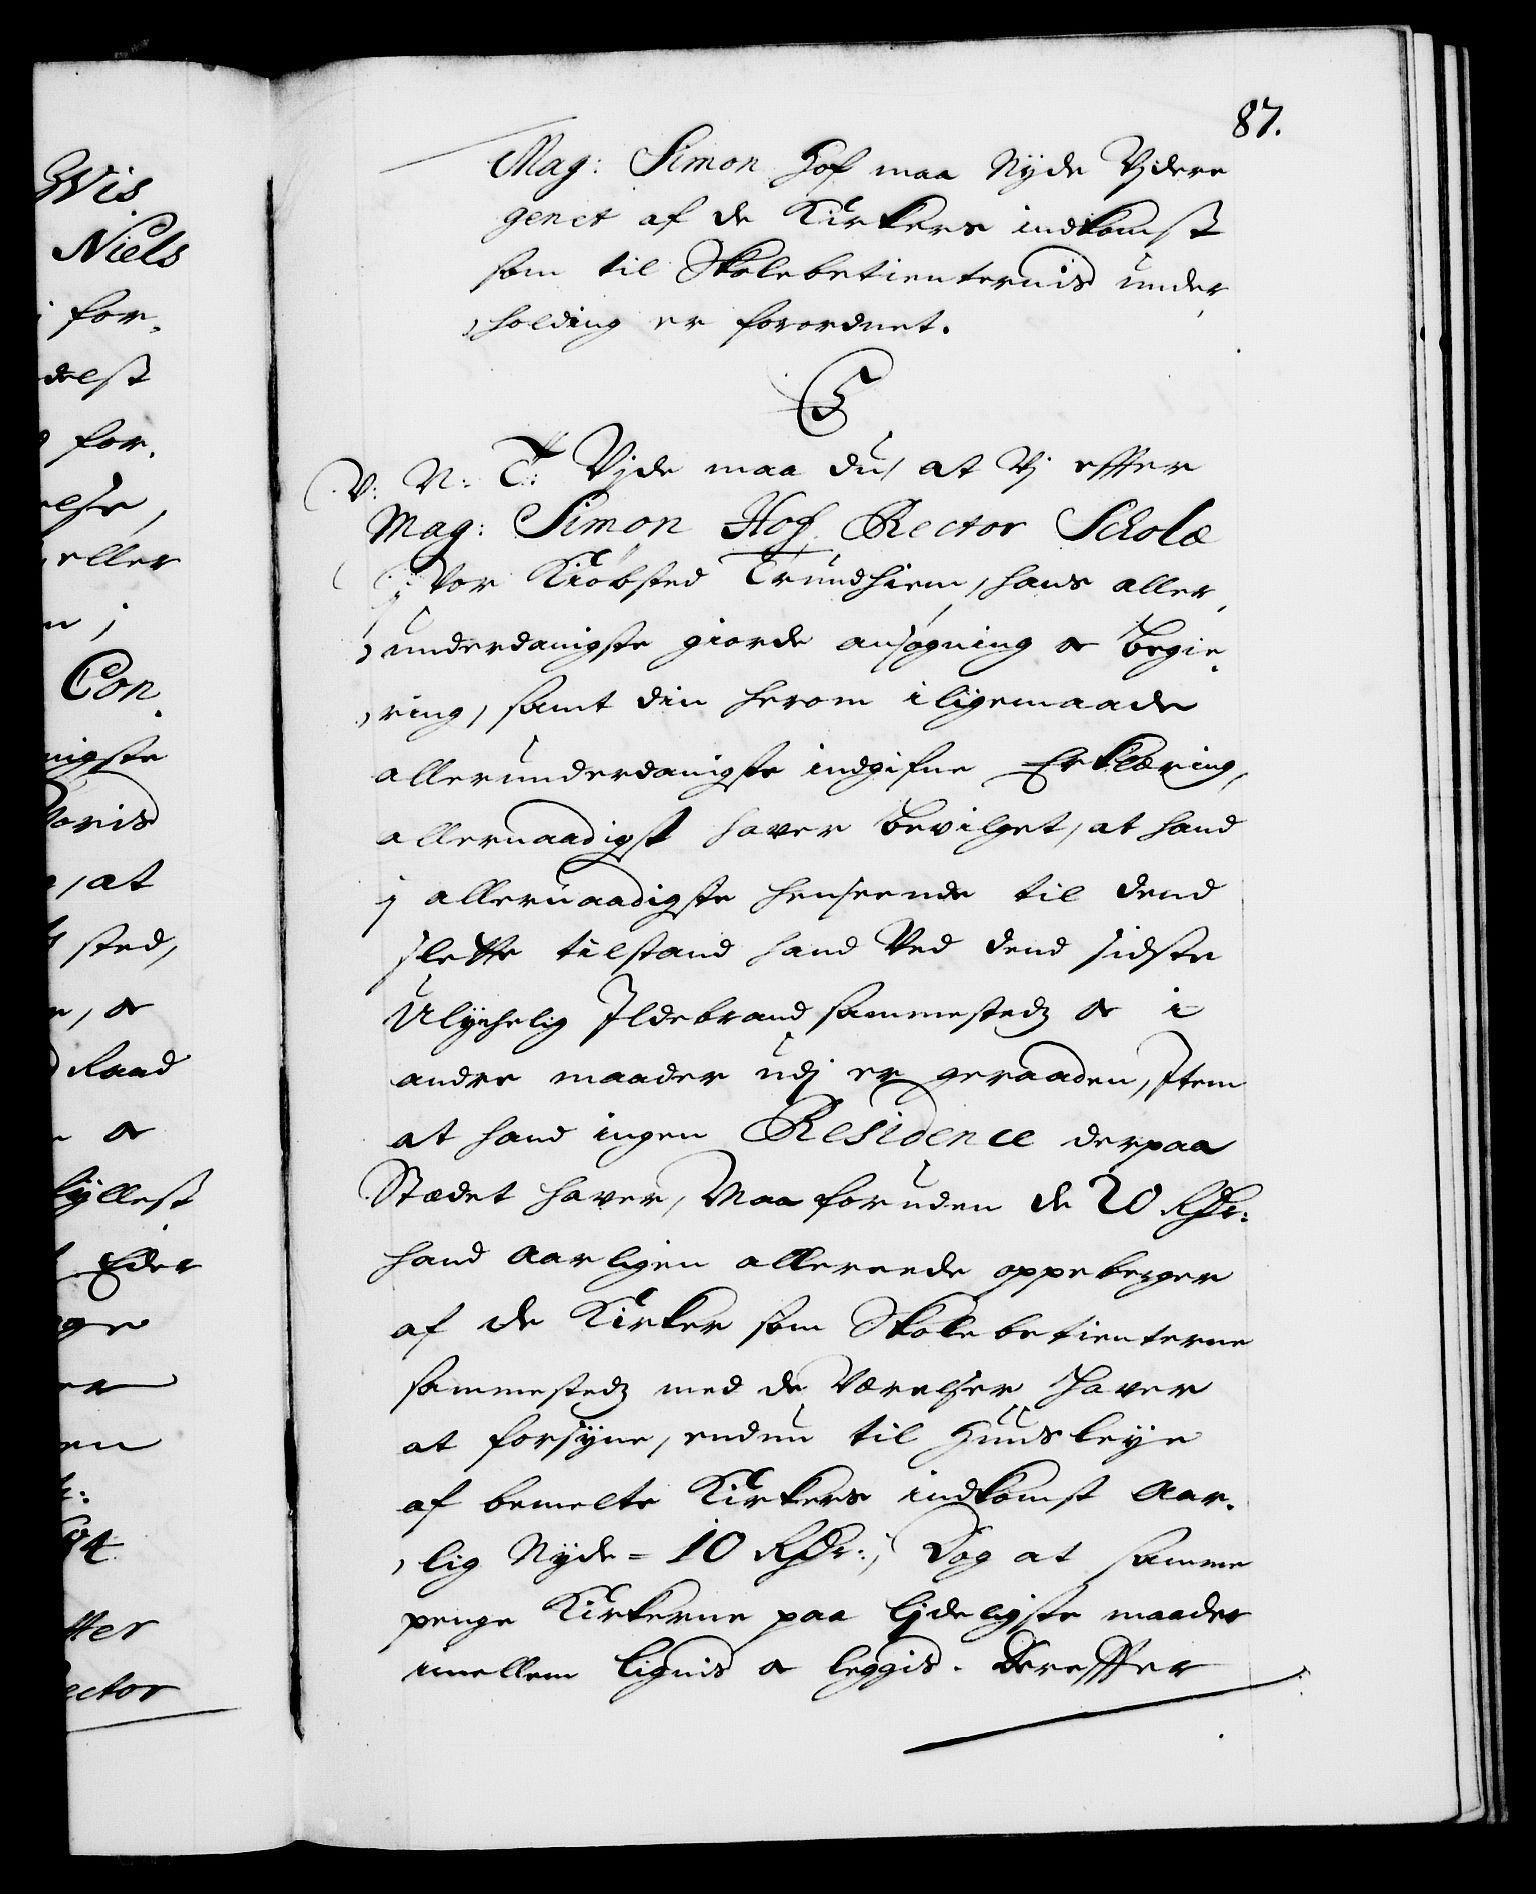 87.
Mag: Simon Hof maa Nyde Vjdere
genet af de Kirkers indkomst
som til Skolebetienternis under
holding er forordnet.
C5
V: N: T: Vjde maa du, at Vj effter
Mag: Simon Hof, Rector Scholæ
j Vor Kiöbsted Trundhiem, hans aller,
underdanigste giorde ansøgning oc begie,
ring, samt din herom i ligemaade
allerunderdanigste indgifne Erklæring,
allernaadigst haver bevilget, at hand
j allernaadigste henseende til dend
slette tilstand hand Ved dend sidste
Ulychelig Ildebrand sammestedz oc i
andre maader udj er geraaden, Item
at hand ingen Residence der paa
Stædet haver, Maa foruden de 20 Rdr:
hand Aarligen allereede oppeberger
af de Kirker som Skolebetienterne
sammestedz med de Værelser haver
at forsyne, endnu til Huus leye
af bemelte Kirkers indkomst Aar,
lig Nyde = 10 Rdr:, Dog at samme
penge Kirkerne paa ljdeligste maader
imellem lignis oc leggis. Dereffter
Wis
Niels
for,
delst
for,
else,
eller
n j
Con,
nigste
Voris
, at
sted,
, oc
Raad
oc
lyllest
Eder
ge
er
en
ter
ector